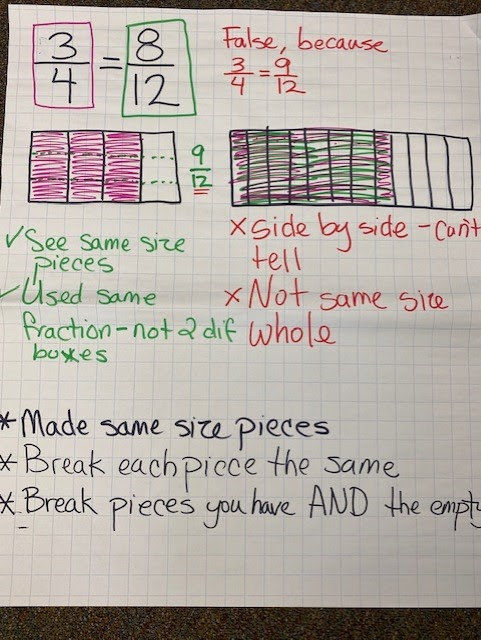 3/4 = 8/12
False, because
3/4 = 9/12
9/12
✓ See same size
pieces
✓ Used same
fraction - not 2 dif
boxes
x side by side - can't
tell
x Not same size
whole
* Made same size pieces
* Break each piece the same
* Break pieces you have AND the empty